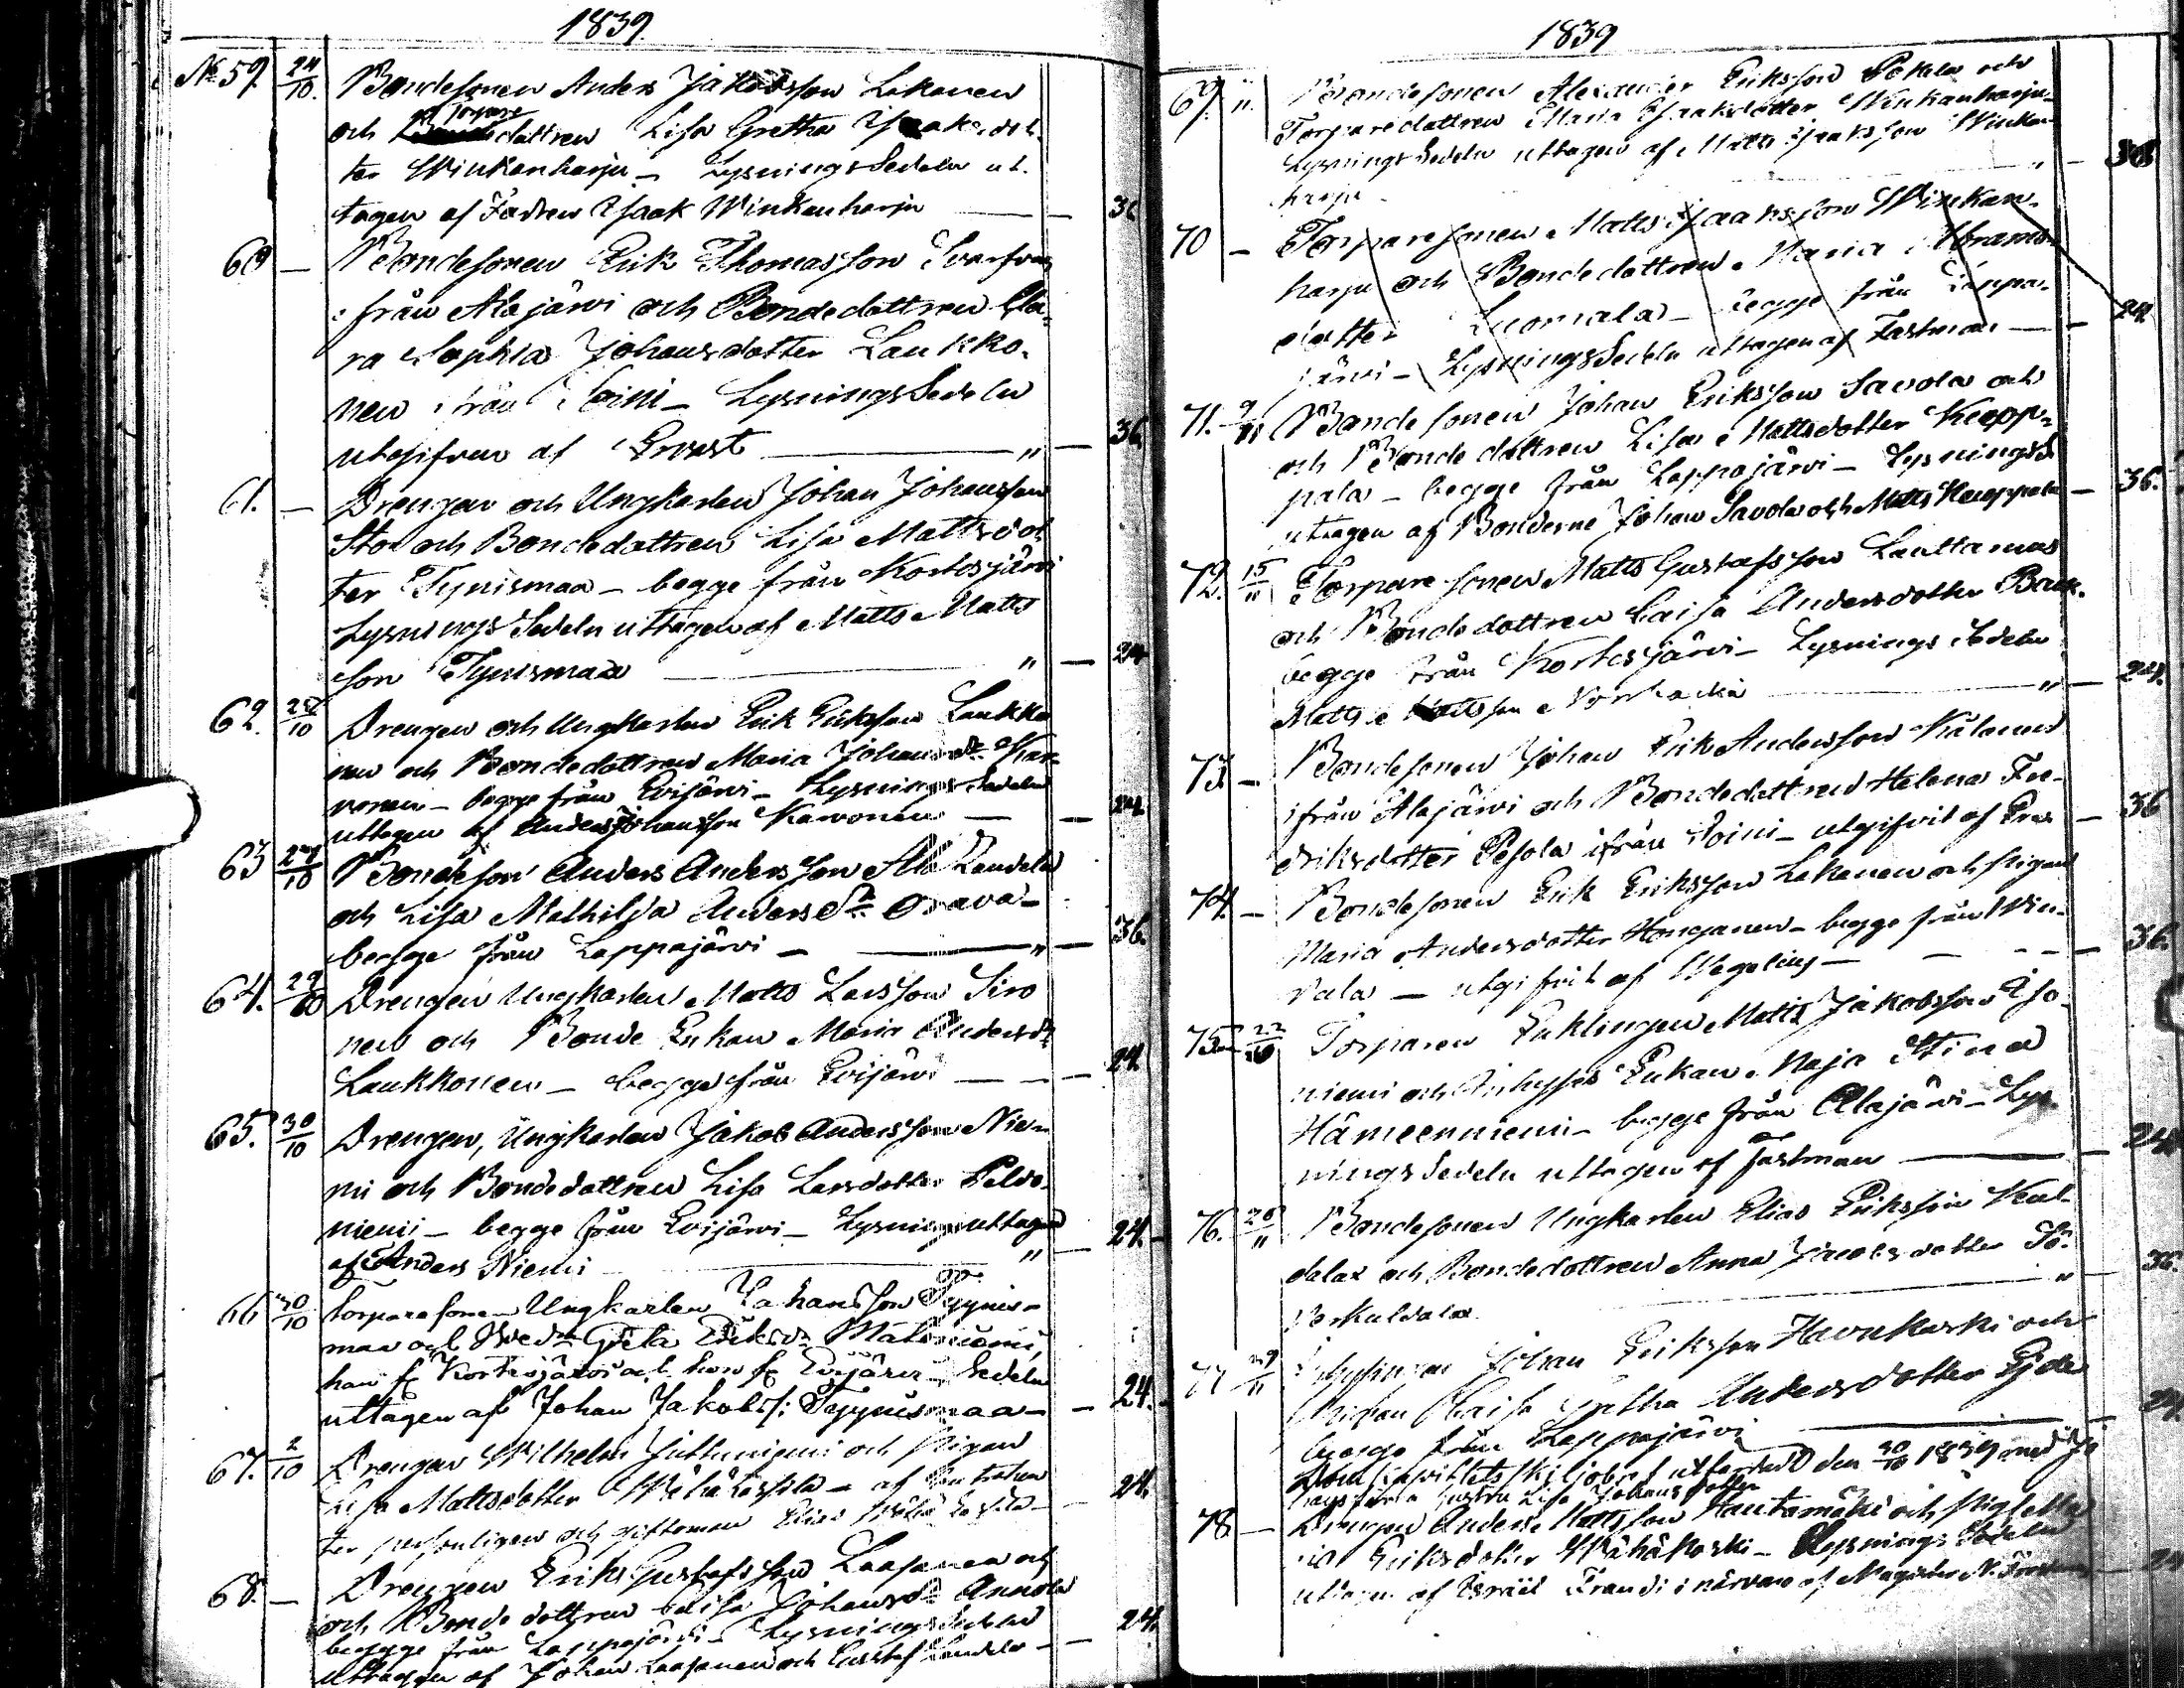 1839.
No 59. 24/10. Bondesonen Anders Jakobsson Lakanen
Torpare
och dottren Lisa Gretha Isaksdot-
ter Winkanharju - Lysnings Sedeln ut-
tagen af Fadren Isaak Winkanharju — 36
60 — Bondesonen Erik Thomasson
från Alajärwi och Bondedottren Cla-
ra Sophia Johansdotter Laukko-
nen från Soini - Lysnings Sedeln
utgifven af Prost — " — 36
61. — Drengen och Ungkarlen Johan Johansson
Sto och Bondedottren Lisa Mattsdot
ter Tynismaa - begge från Kortesjärwi
Lysnings Sedeln uttagen af Matts Matts
son Tynismaa — " — 24
62. 10 Drengen och Ungkarlen Erik Eriksson Laukko
nen och Bondedottren Maria Johansdr Kar-
vonen - begge från Evijärwi - Lysnings Sedeln
uttagen af Anders Johansson Karvonen — 24
63 27/10 Bondeson Anders Andersson Landela
och Lisa Mathilda Andersdr Orava -
begge från Lappajärvi — " — 36.
64. 29/10 Drengen Ungkarlen Matts Larsson Siro
nen och Bonde Enkan Maria Andersdr
Laukkonen - begge från Evijärwi — 24
65. 30/10 Drengen, Ungkarlen Jakob Andersson Nie-
mi och Bondedottren Lisa Larsdotter Peldo-
niemi - begge från Evijärwi - Lysning uttagen
af Anders Niemi — " — 24.
66 30/10 Torparesonen Ungkarlen Johansson Tyynis-
maa och Greta Eriksdr Matoniemi,
han fr Kortesjärwi och hon fr Evijärwi - Sedeln
uttagen af Johan Jakobss: Tyynismaa — 24.
67. 2/10 Drengen Wilhelm Juthuniemi och Pigan
Lisa Mattsdotter Wähä Lassila - af
ter personligen och giftoman Elias Wähä Lassila — 24.
68. — Drengen Erik Gustafsson Laasanen och
och Bondedottren Caisa Johansdr Annola
begge från Lappajärvi - Lysnings Sedeln
uttagen af Johan Laasanen och Gustaf Landela — 24.
1839
69. 11. Bondesonen Alexander Eriksson Pokela och
Torparedottren Maria Isaaksdotter Winkanharju -
Lysnings Sedeln uttagen af Matts Isaksson Winkan-
harju — " — 36
70 — Torparesonen Matts Isaaksson Winkan-
harju och Bondedottren Maria Abrams-
dotter Luomala - begge från Lappa-
järvi - Lysnings Sedeln uttagen af Fastman — 24
71. 9/11 Bondesonen Johan Eriksson Savola och
och Bondedottren Lisa Mattsdotter Keopp-
pala - begge från Lappajärvi - Lysnings S
uttagen af Bönderne Johan Savola och Matts Keoppala — 36.
72. 15/11 Torparesonen Matts Gustafsson Lauttamus
och Bondedottren Caisa Andersdotter Back.
begge från Kortesjärvi - Lysnings Sedeln
Matts Mattsson — " — 24.
73. — Bondesonen Johan Erik Andersson Kålanen
ifrån Alajärwi och Bondedottren Helena Fre-
driksdotter Pesola ifrån Soini - utgifvit af — 36
74. — Bondesonen Erik Eriksson Lakanen och Pigan
Maria Andersdotter Honganen - begge från Vin-
dala — utgifvit af Wegelius — 36.
75. 22 Torparen Enklingen Matts Jakobsson
niemi och Inhyses Enkan Maja Stina
Hämeenniemi - begge från Alajärwi - Lys
nings Sedeln uttagen af Fastman — 24
76. 26/11 Bondesonen Ungkarlen Elias Eriksson Kul-
dalax och Bondedottren Anna Jacobsdotter
— " — 36.
77 29/11 Johan Eriksson Havukoski och
Pigan Caisa Gretha Andersdotter
begge från Lappajärvi — 24
Domkapitlets Skiljobref utfärdadt den 30/10 1839 med
hans förra hustru Lisa Johansdotter
78 — Drengen Anders Mattsson Hautamäki och Pig Ma
ria Eriksdotter Wähäkoski - Lysnings Sedeln
uttagen af Israel Frandi i närvaro af Magister N. — 24